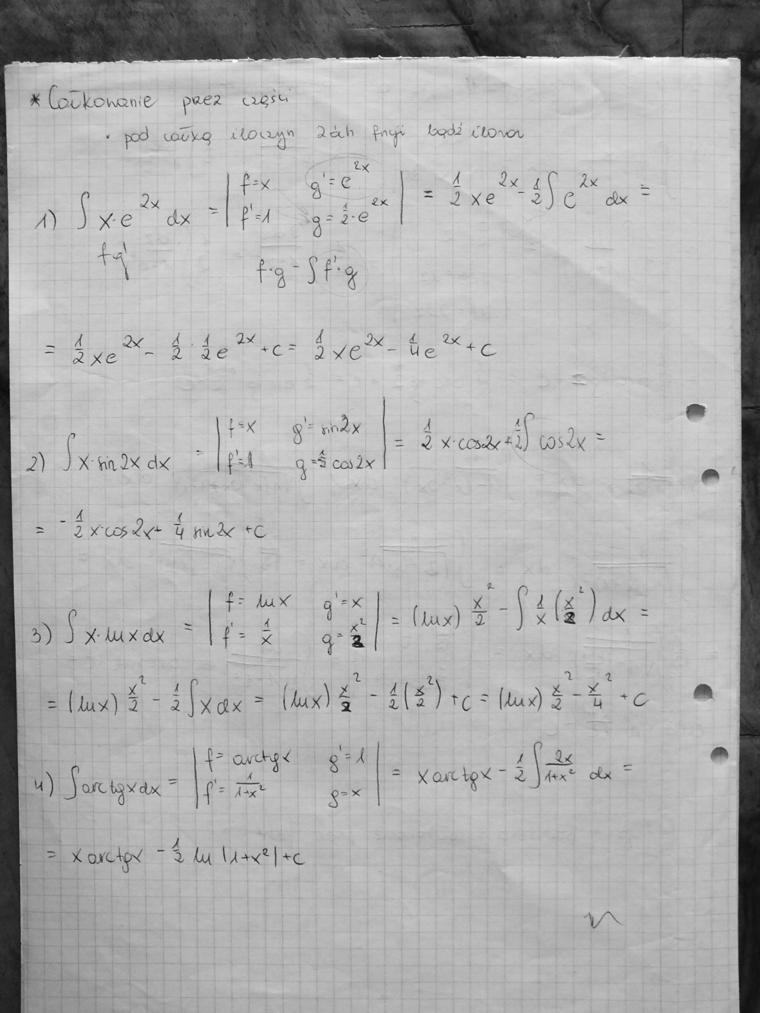 * Całkowanie przez części
• pod całką iloczyn 2ch fncji bądź iloraz
1) ∫ x·e^{2x} dx = | f=x g'=e^{2x} f'=1 g=1/2·e^{2x} | = 1/2 xe^{2x} - 1/2 ∫ e^{2x} dx =
f g'
f·g - ∫ f'·g
= 1/2 xe^{2x} - 1/2 · 1/2 e^{2x} + c = 1/2 xe^{2x} - 1/4 e^{2x} + c
2) ∫ x·sin2x dx = | f=x g'=sin2x f'=1 g=-1/2 cos2x | = 1/2 x·cos2x + 1/2 ∫ cos2x =
= -1/2 x·cos2x + 1/4 sin2x + c
3) ∫ x·lnx dx = | f=lnx g'=x f'=1/x g=x²/2 | = (lnx) x²/2 - ∫ 1/x (x²/2) dx =
= (lnx) x²/2 - 1/2 ∫ x dx = (lnx) x²/2 - 1/2 (x²/2) + c = (lnx) x²/2 - x²/4 + c
4) ∫ arctgx dx = | f=arctgx g'=1 f'=1/(1+x²) g=x | = x arctgx - 1/2 ∫ 2x/(1+x²) dx =
= x arctgx - 1/2 ln |1+x²| + c